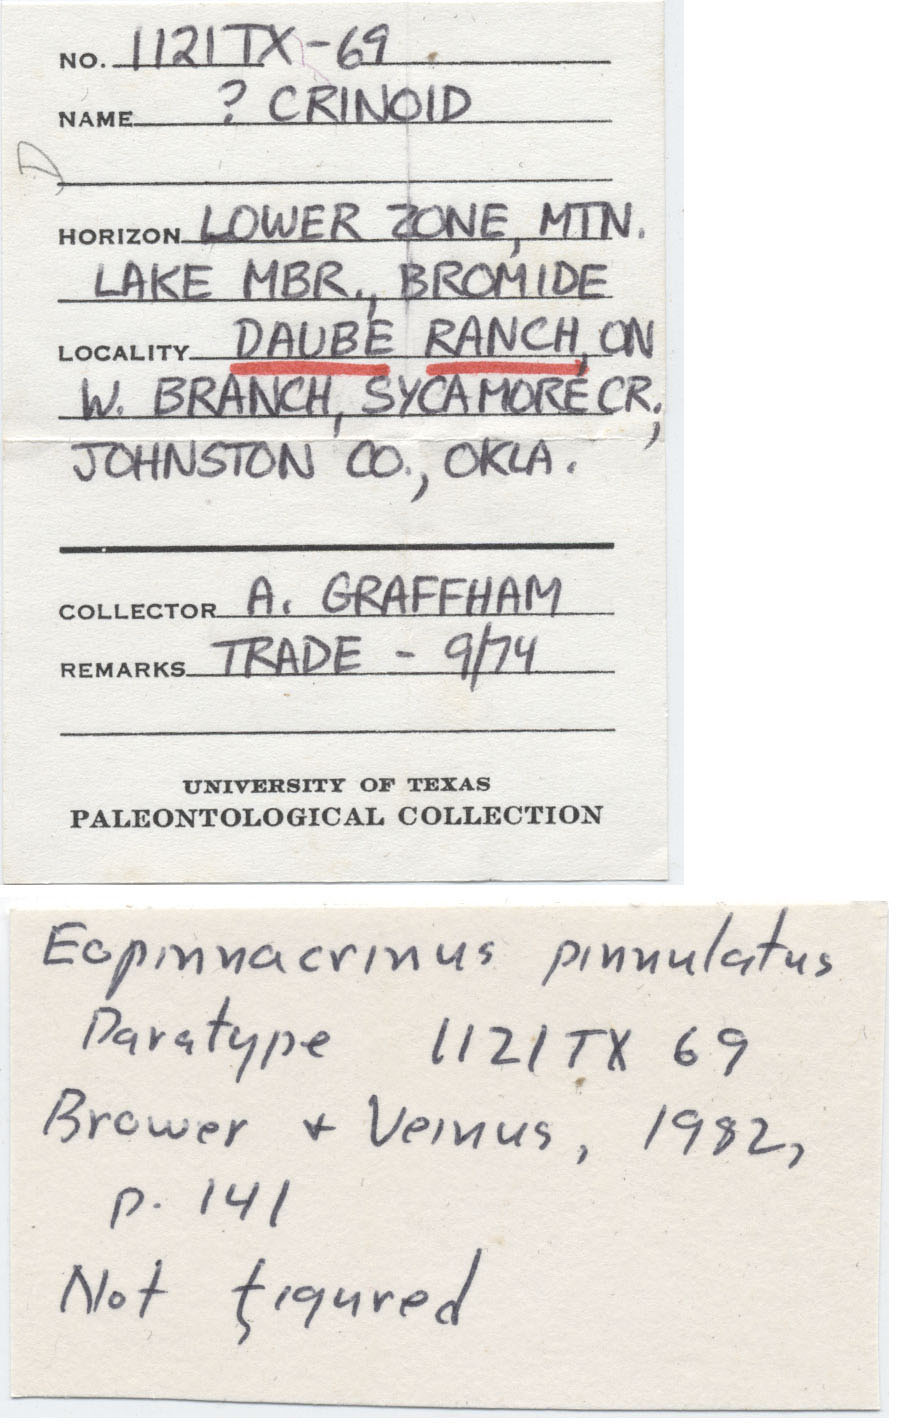 NO. 1121TX-69
NAME ? CRINOID
D
HORIZON LOWER ZONE, MTN.
LAKE MBR., BROMIDE
LOCALITY DAUBE RANCH, ON
W. BRANCH, SYCAMORE CR.,
JOHNSTON CO., OKLA.
COLLECTOR A. GRAFFHAM
REMARKS TRADE - 9/74
UNIVERSITY OF TEXAS
PALEONTOLOGICAL COLLECTION
Eopinnacrinus pinnulatus
Paratype 1121TX 69
Brower + Veinus, 1982,
p. 141
Not figured